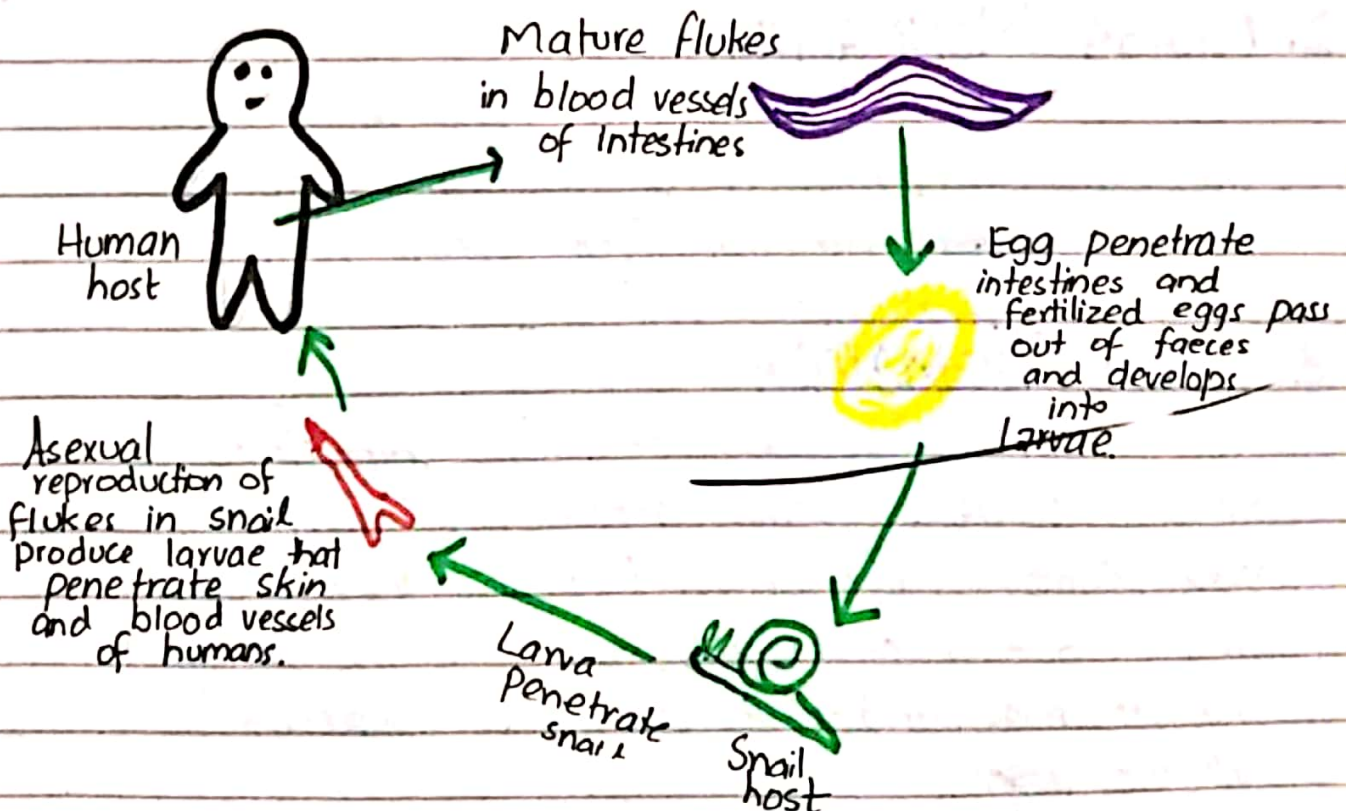 Mature flukes
in blood vessels
of Intestines
Human
host
Egg penetrate
intestines and
fertilized eggs pass
out of faeces
and develops
into
Larvae.
Snail
host
Larva
Penetrate
snail
Asexual
reproduction of
flukes in snail
produce larvae that
penetrate skin
and blood vessels
of humans.